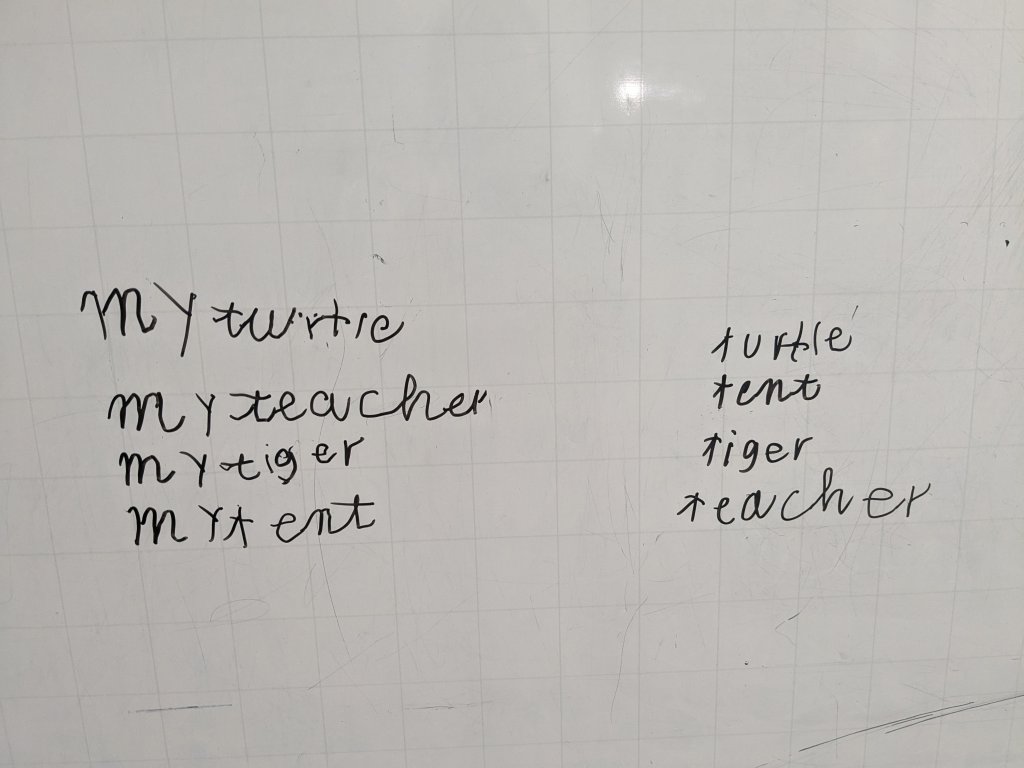 my turtle
my teacher
my tiger
my tent
turtle
tent
tiger
teacher